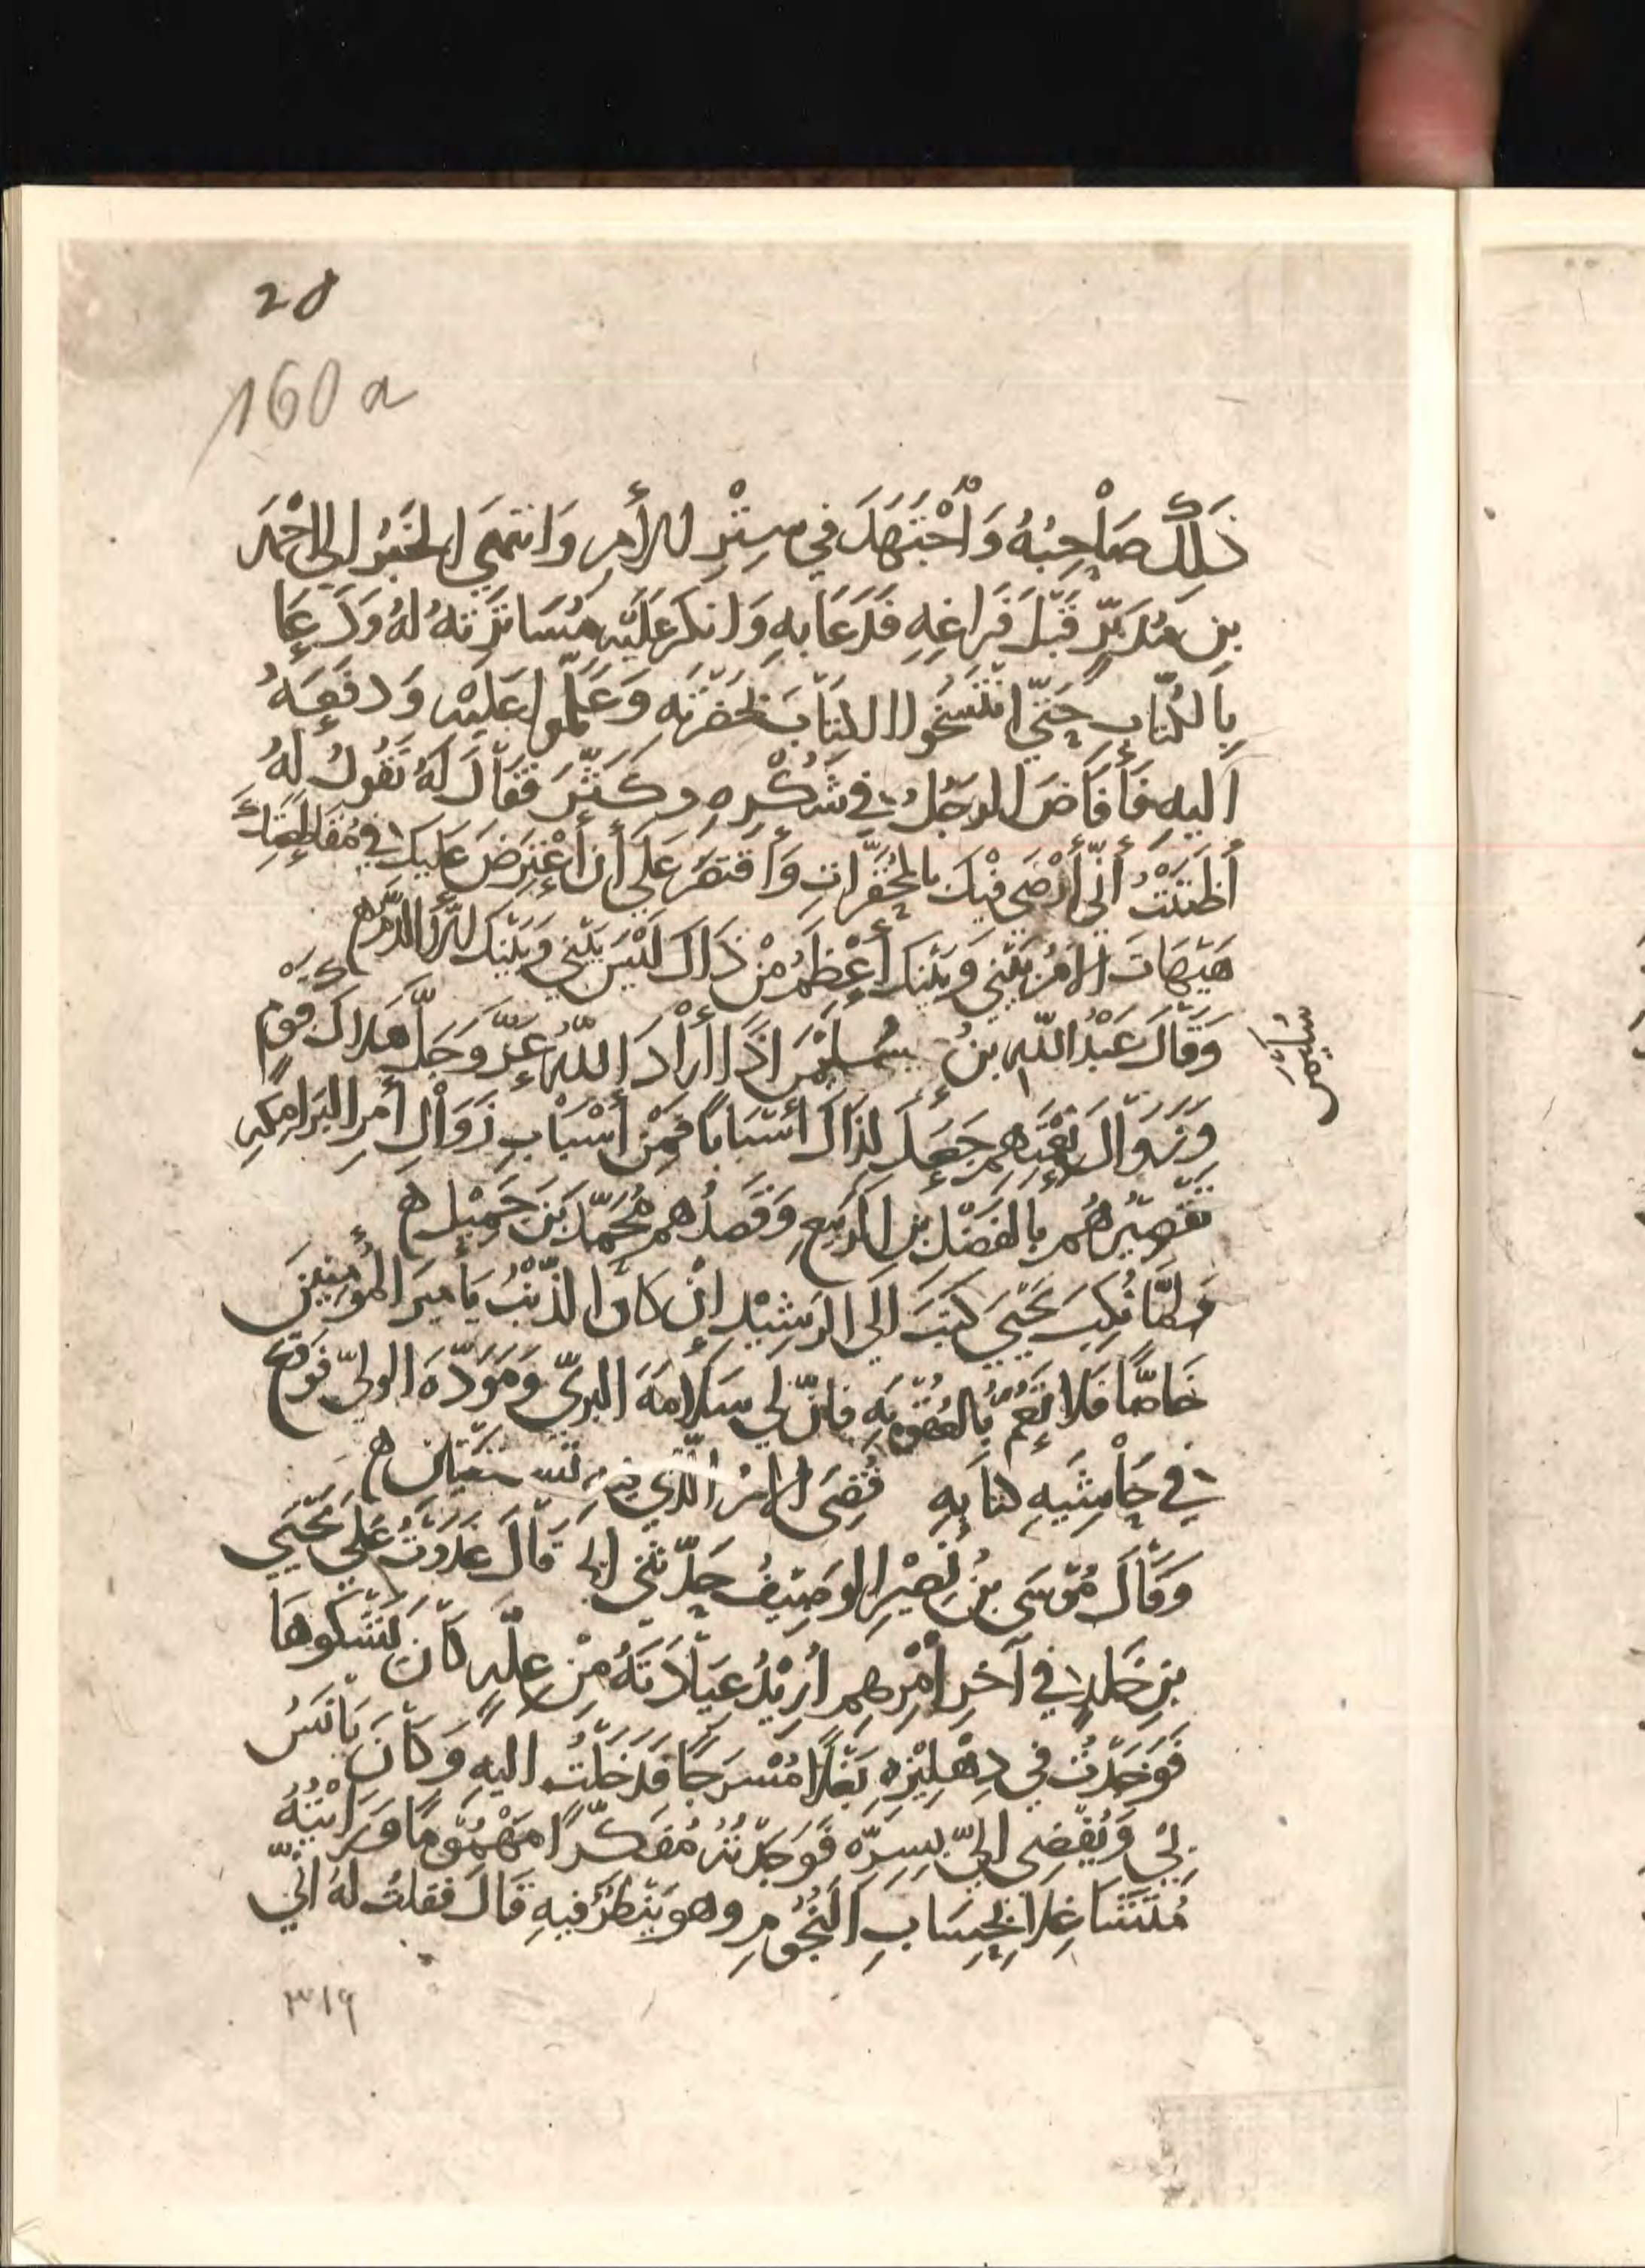 28
160 a
ذَلِكَ صَاحِبُهُ وَاجْتَهَدَ في سِتْرِ الأَمرِ وَانتَهَي الخَبَرُ الي احْمَد
بنِ مُدَبِّرٍ قَبْلَ فَرَاغِهِ فَدَعَا بِهِ وَانكَرَ عَلَيْهِ مُسَاتَرَتهُ لهُ وَدَعَا
بِالكُتَّابِ حَتّي انْتَسَخُوا الكِتَابَ بحَضْرَتهِ وَعَمِلُوا عَلَيْهِ وَدفَعَهُ
اليهِ فَأَفَاضَ الرجُلُ في شُكْرِهِ وكَثَّرَ فَقَالَ لَهُ تَقُولُ لهُ
أَظَنَنْتُ أَنّي أَرْضَي فِيْكَ بالمُحَقَّرَاتِ وَأَقتَصَرُ عَلَي أَن أَعْتَرِضَ عَلَيكَ في مُقَاطَعَتِكَ
هَيْهَاتَ الامرُ بَيْني وَبَيْنَكَ أَعْظَمُ مِنْ ذَاكَ لَيْسَ بَيْني وَبَيْنَكَ الَّا الدَّمُ ه
وَقَالَ عَبْدُ اللهِ بنُ سُلَيْمَن اذَا أَرَادَ اللهُ عَزَّ وَجَلَّ هَلَاكَ قَوْمٍ
سُلَيْمَن
وَزَوَالَ نِعْمَتِهِمِ جَعَلَ لِذَاكَ أَسْبَابًا فَمِنْ أَسْبَابِ زَوَالِ أَمرِ البَرَامِكَهِ
تَقْصِيْرُهُم بالفَضْلِ بنِ الرَبِيْعِ وَقَصْدُهم مُحَمَّدَ بْنَ جَمِيْلٍ ه
وَلَمَّا نُكِبَ يَحْيَي كَتَبَ الَي الرَشِيْدِ انْ كَانَ الذَّنْبُ يَا أَمِيرَ المُؤمِنِيْنَ
خَاصًّا فَلا تَعُمَّ بالعُقُوبَهِ فانّ لي سَلَامَهَ البريّ وَمَوَدَّهَ الوليّ فوقّع
في حَاشِيَهِ كتابِهِ قُضِيَ الامرُ الَّذِي فيهِ تَسْتَفْتِيَانِ ه
وَقَالَ مُوسَى بنُ نُصَيْرٍ الوَصِيْفُ حَدّثَنِي ابي قَالَ غَدَوْتُ عَلَي يَحْيَي
بنِ خَلدٍ في آخِرِ أَمْرِهِمِ أُرِيْدُ عِيَادَتَهُ مِنْ عِلَّهٍ كَانَ يَشْكُوهَا
فَوَجَدْتُ في دِهْلِيْزِهِ بَغْلًا مُسْرَجًا فَدَخَلْتُ اليهِ وَكَانَ يَأنَسُ
بِي وَيُفْضِي اليَّ بِسِرِّهِ فَوَجَدْتُهُ مُفَكِّرًا مَهْمُوْمًا وَرَأَيْتُهُ
مُتَشَاغِلًا بحِسَابِ النُجُومِ وهو يَنْظُرُ فيهِ قَالَ فقلتُ لَهُ انّي
٣١٩